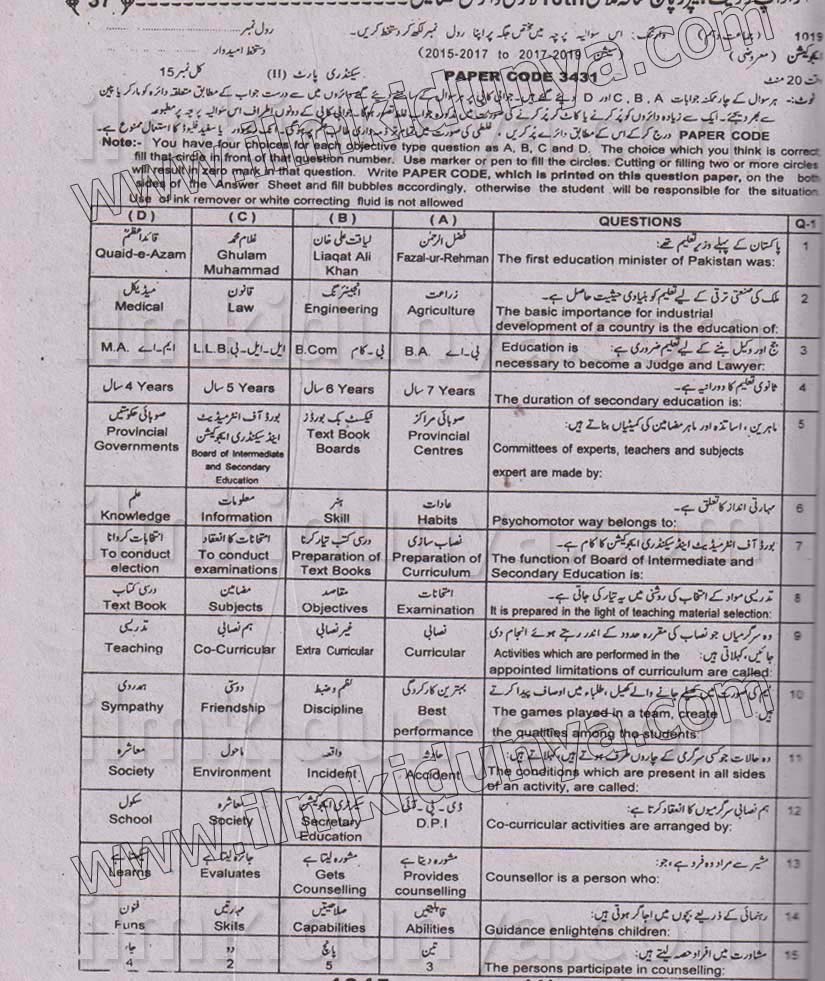 37
1019
رول نمبر
وارننگ: اس سوالیہ پرچہ میں مختص جگہ پر اپنا رول نمبر لکھ کر دستخط کریں۔
دستخط امیدوار
ایجوکیشن (معروضی) (سیشن 2015-2017 to 2017-2019)
کل نمبر 15 سیکنڈری پارٹ (II) PAPER CODE 3431 وقت 20 منٹ
PAPER CODE درج کر کے اس کے مطابق دائرے پُر کریں
Note:- You have four choices for each objective type question as A, B, C and D. The choice which you think is correct
fill that circle in front of that question number. Use marker or pen to fill the circles. Cutting or filling two or more circles
will result in zero mark in that question. Write PAPER CODE, which is printed on this question paper, on the both
sides of the Answer Sheet and fill bubbles accordingly, otherwise the student will be responsible for the situation
Use of ink remover or white correcting fluid is not allowed
(D) (C) (B) (A) QUESTIONS Q-1
قائداعظم غلام محمد لیاقت علی خان فضل الرحمٰن پاکستان کے پہلے وزیر تعلیم تھے: 1
Quaid-e-Azam Ghulam Muhammad Liaqat Ali Khan Fazal-ur-Rehman The first education minister of Pakistan was:
میڈیکل قانون انجینئرنگ زراعت ملک کی صنعتی ترقی کے لیے تعلیم کو بنیادی حیثیت حاصل ہے۔ 2
Medical Law Engineering Agriculture The basic importance for industrial
development of a country is the education of:
M.A. ایم۔اے L.L.B. ایل۔ایل۔بی B.Com بی۔کام B.A. بی۔اے Education is جج اور وکیل بننے کے لیے تعلیم ضروری ہے: 3
necessary to become a Judge and Lawyer:
4 Years سال 5 Years سال 6 Years سال 7 Years سال ثانوی تعلیم کا دورانیہ ہے۔ 4
The duration of secondary education is:
صوبائی حکومتیں بورڈ آف انٹرمیڈیٹ اینڈ سیکنڈری ایجوکیشن ٹیکسٹ بک بورڈز صوبائی مراکز ماہرین، اساتذہ اور ماہر مضامین کی کمیٹیاں بناتے ہیں: 5
Provincial Governments Board of Intermediate and Secondary Education Text Book Boards Provincial Centres Committees of experts, teachers and subjects
expert are made by:
علم معلومات ہنر عادات مہارتی انداز کا تعلق ہے۔ 6
Knowledge Information Skill Habits Psychomotor way belongs to:
انتخابات کروانا امتحانات کا انعقاد درسی کتب تیار کرنا نصاب سازی بورڈ آف انٹرمیڈیٹ اینڈ سیکنڈری ایجوکیشن کا کام ہے۔ 7
To conduct election To conduct examinations Preparation of Text Books Preparation of Curriculum The function of Board of Intermediate and
Secondary Education is:
درسی کتاب مضامین مقاصد امتحانات تدریسی مواد کے انتخاب کی روشنی میں یہ تیار کی جاتی ہے۔ 8
Text Book Subjects Objectives Examination It is prepared in the light of teaching material selection:
تدریسی ہم نصابی غیر نصابی نصابی وہ سرگرمیاں جو نصاب کی مقررہ حدود کے اندر رہتے ہوئے انجام دی 9
Teaching Co-Curricular Extra Curricular Curricular Activities which are performed in the جائیں، کہلاتی ہیں:
appointed limitations of curriculum are called:
ہمدردی دوستی نظم و ضبط بہترین کارکردگی ٹیم کی صورت میں کھیلے جانے والے کھیل، طلباء میں اوصاف پیدا کرتے 10
Sympathy Friendship Discipline Best performance The games played in a team, create ہیں:
the qualities among the students
معاشرہ ماحول واقعہ حادثہ وہ حالات جو کسی سرگری کے چاروں طرف ہوتے ہیں، کہلاتے ہیں: 11
Society Environment Incident Accident The conditions which are present in all sides
of an activity, are called:
سکول معاشرہ سیکرٹری ایجوکیشن ڈی۔پی۔آئی ہم نصابی سرگرمیوں کا انعقاد کرتا ہے: 12
School Society Secretary Education D.P.I Co-curricular activities are arranged by:
جائزہ لیتا ہے مشورہ لیتا ہے مشورہ دیتا ہے مشیر سے مراد وہ فرد ہے، جو: 13
Learns Evaluates Gets Counselling Provides counselling Counsellor is a person who:
فنون مہارتیں صلاحیتیں قابلیتیں رہنمائی کے ذریعے بچوں میں اجاگر ہوتی ہیں: 14
Funs Skils Capabilities Abilities Guidance enlightens children:
چار دو پانچ تین مشاورت میں افراد حصہ لیتے ہیں: 15
4 2 5 3 The persons participate in counselling:
www.ilmkidunya.com
ilmkidunya.com
www.ilmkidunya.com
ilmkidunya.com